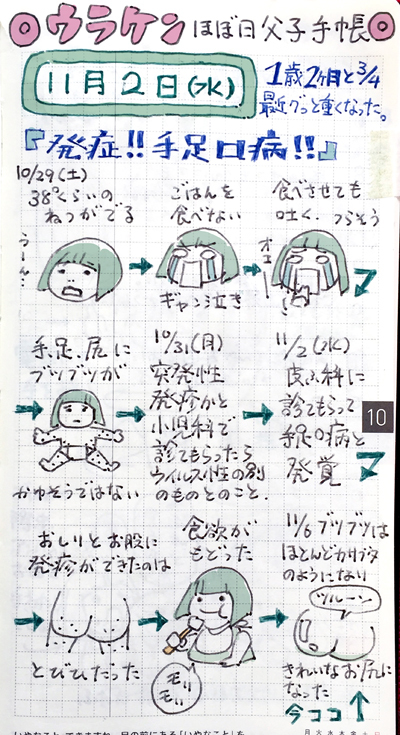 ウラケン ほぼ日父子手帳
11月2日(水)
1歳2ヶ月と3/4
最近グっと重くなった。
『発症!!手足口病!!』
10/29(土)
38℃くらいの
ねつがでる
うーん…
ごはんを
食べない
ギャン泣き
食べさせても
吐く、つらそう
オェー
手、足、尻に
ブツブツが
かゆそうではない
10/31(月)
突発性
発疹かと
小児科で
診てもらったら
ウイルス性の別
のものとのこと。
11/2(水)
皮ふ科に
診てもらって
手足口病と
発覚
10
おしりとお股に
発疹ができたのは
とびひだった
食欲が
もどった
モリ
モリ
11/6 ブツブツは
ほとんどカサブタ
のようになり
ツルーン
きれいなお尻に
なった
今ココ
月 火 水 木 金 土 日